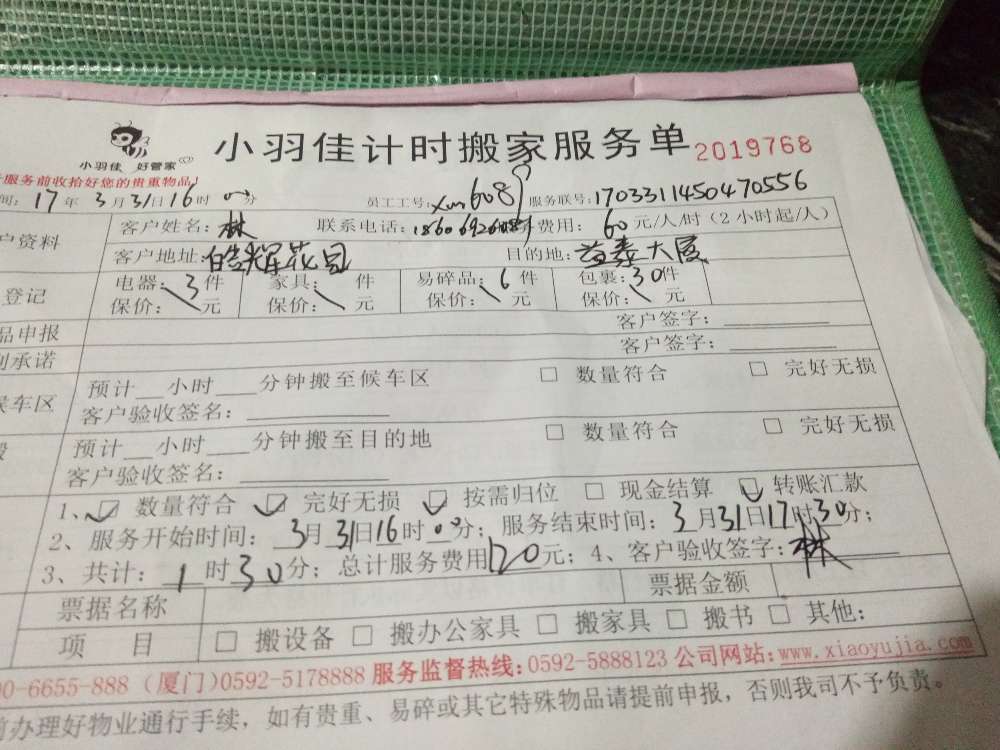 小羽佳 好管家
小羽佳计时搬家服务单 2019768
服务前收拾好您的贵重物品!
间: 17年3月31日16时00分 员工工号: xm608 服务联号: 1703311450470556
户资料 客户姓名: 林 联系电话: 费用: 60元/人/时(2小时起/人)
客户地址: 皓晖花园 目的地: 大厦
登记 电器: 3件 家具: 件 易碎品: 6件 包裹: 30件
保价: 元 保价: 元 保价: 元 保价: 元
品申报 客户签字:
承诺 客户签字:
候车区 预计__小时___分钟搬至候车区 □ 数量符合 □ 完好无损
客户验收签名:
预计__小时___分钟搬至目的地 □ 数量符合 □ 完好无损
客户验收签名:
1、☑ 数量符合 ☑ 完好无损 ☑ 按需归位 □ 现金结算 ☑ 转账汇款
2、服务开始时间: 3月31日16时00分; 服务结束时间: 3月31日17时30分;
3、共计: 1时30分; 总计服务费用120元; 4、客户验收签字: 林
票据名称 票据金额
项 目 □ 搬设备 □ 搬办公家具 □ 搬家具 □ 搬书 □ 其他:
00-6655-888 (厦门)0592-5178888 服务监督热线:0592-5888123 公司网站:www.xiaoyujia.com
前办理好物业通行手续, 如有贵重、易碎或其它特殊物品请提前申报, 否则我司不予负责。